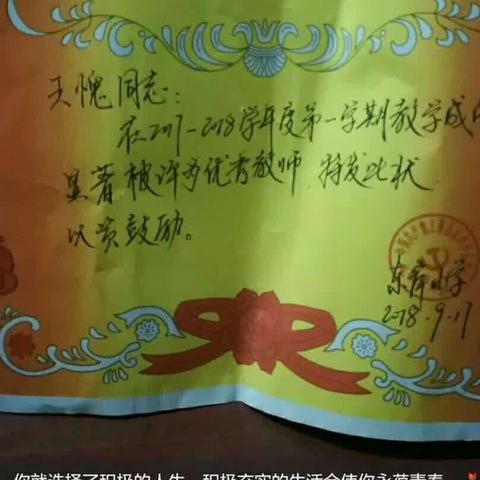 王愧同志：
在2017-2018学年度第一学期教学成
显著被评为优秀教师，特发此状，
以资鼓励。
东岸小学
2018.9.17
你就选择了积极的人生，积极充实的生活会使你永葆青春